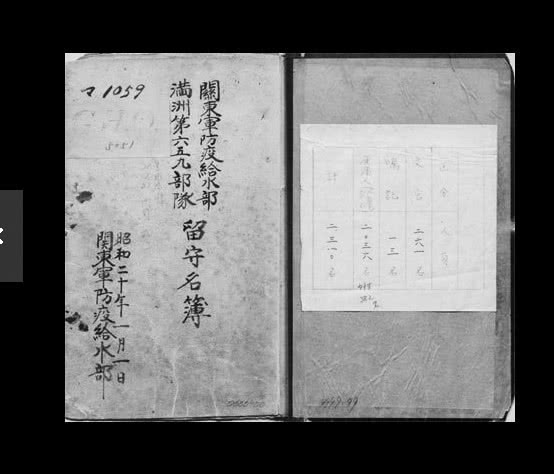 マ1059
關東軍防疫給水部
満洲第六五九部隊
留守名簿
昭和二十年一月一日
関東軍防疫給水部
文官 二六一名
嘱託 一三名
二.〇三六名
計 二.三一〇名